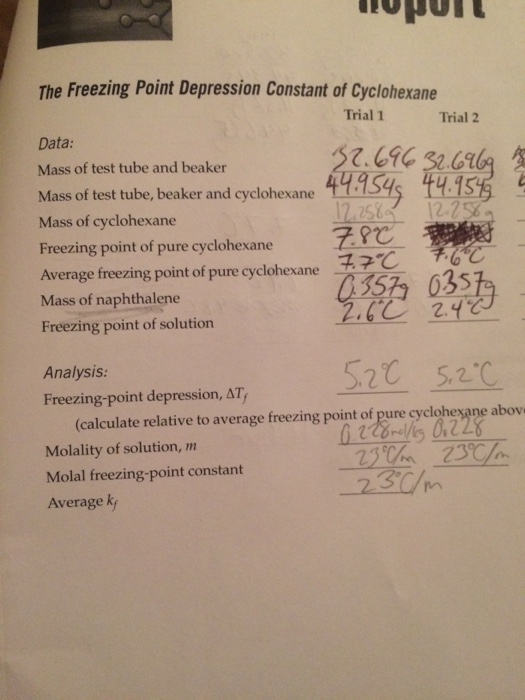 Report
The Freezing Point Depression Constant of Cyclohexane
Trial 1 Trial 2
Data:
Mass of test tube and beaker 32.696 32.696g
Mass of test tube, beaker and cyclohexane 44.954g 44.954g
Mass of cyclohexane 12.258g 12.258g
Freezing point of pure cyclohexane 7.8°C 7.6°C
Average freezing point of pure cyclohexane 7.7°C
Mass of naphthalene 0.357g 0.357g
Freezing point of solution 2.6°C 2.4°C
Analysis:
Freezing-point depression, ΔTf 5.2°C 5.2°C
(calculate relative to average freezing point of pure cyclohexane above
Molality of solution, m 0.228mol/kg 0.228
Molal freezing-point constant 23°C/m 23°C/m
Average kf 23°C/m